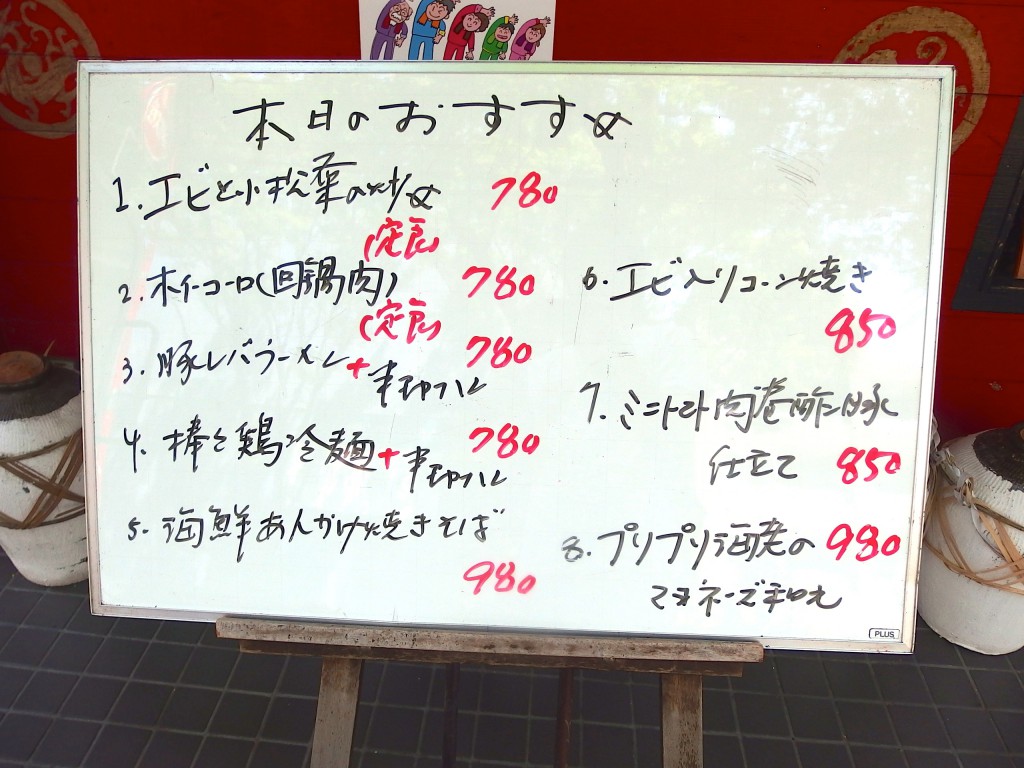 本日のおすすめ
1. エビと小松菜の炒め 780
(定食)
2. ホイコーロ(回鍋肉) 780
(定食)
3. 豚レバラーメン+半チャーハン 780
4. 棒々鶏冷麺+半チャーハン 780
5. 海鮮あんかけ焼きそば
980
6. エビ入りコーン焼き
850
7. ミニトマト肉巻酢豚
仕立て 850
8. プリプリ海老の 980
マヨネーズ和え
PLUS